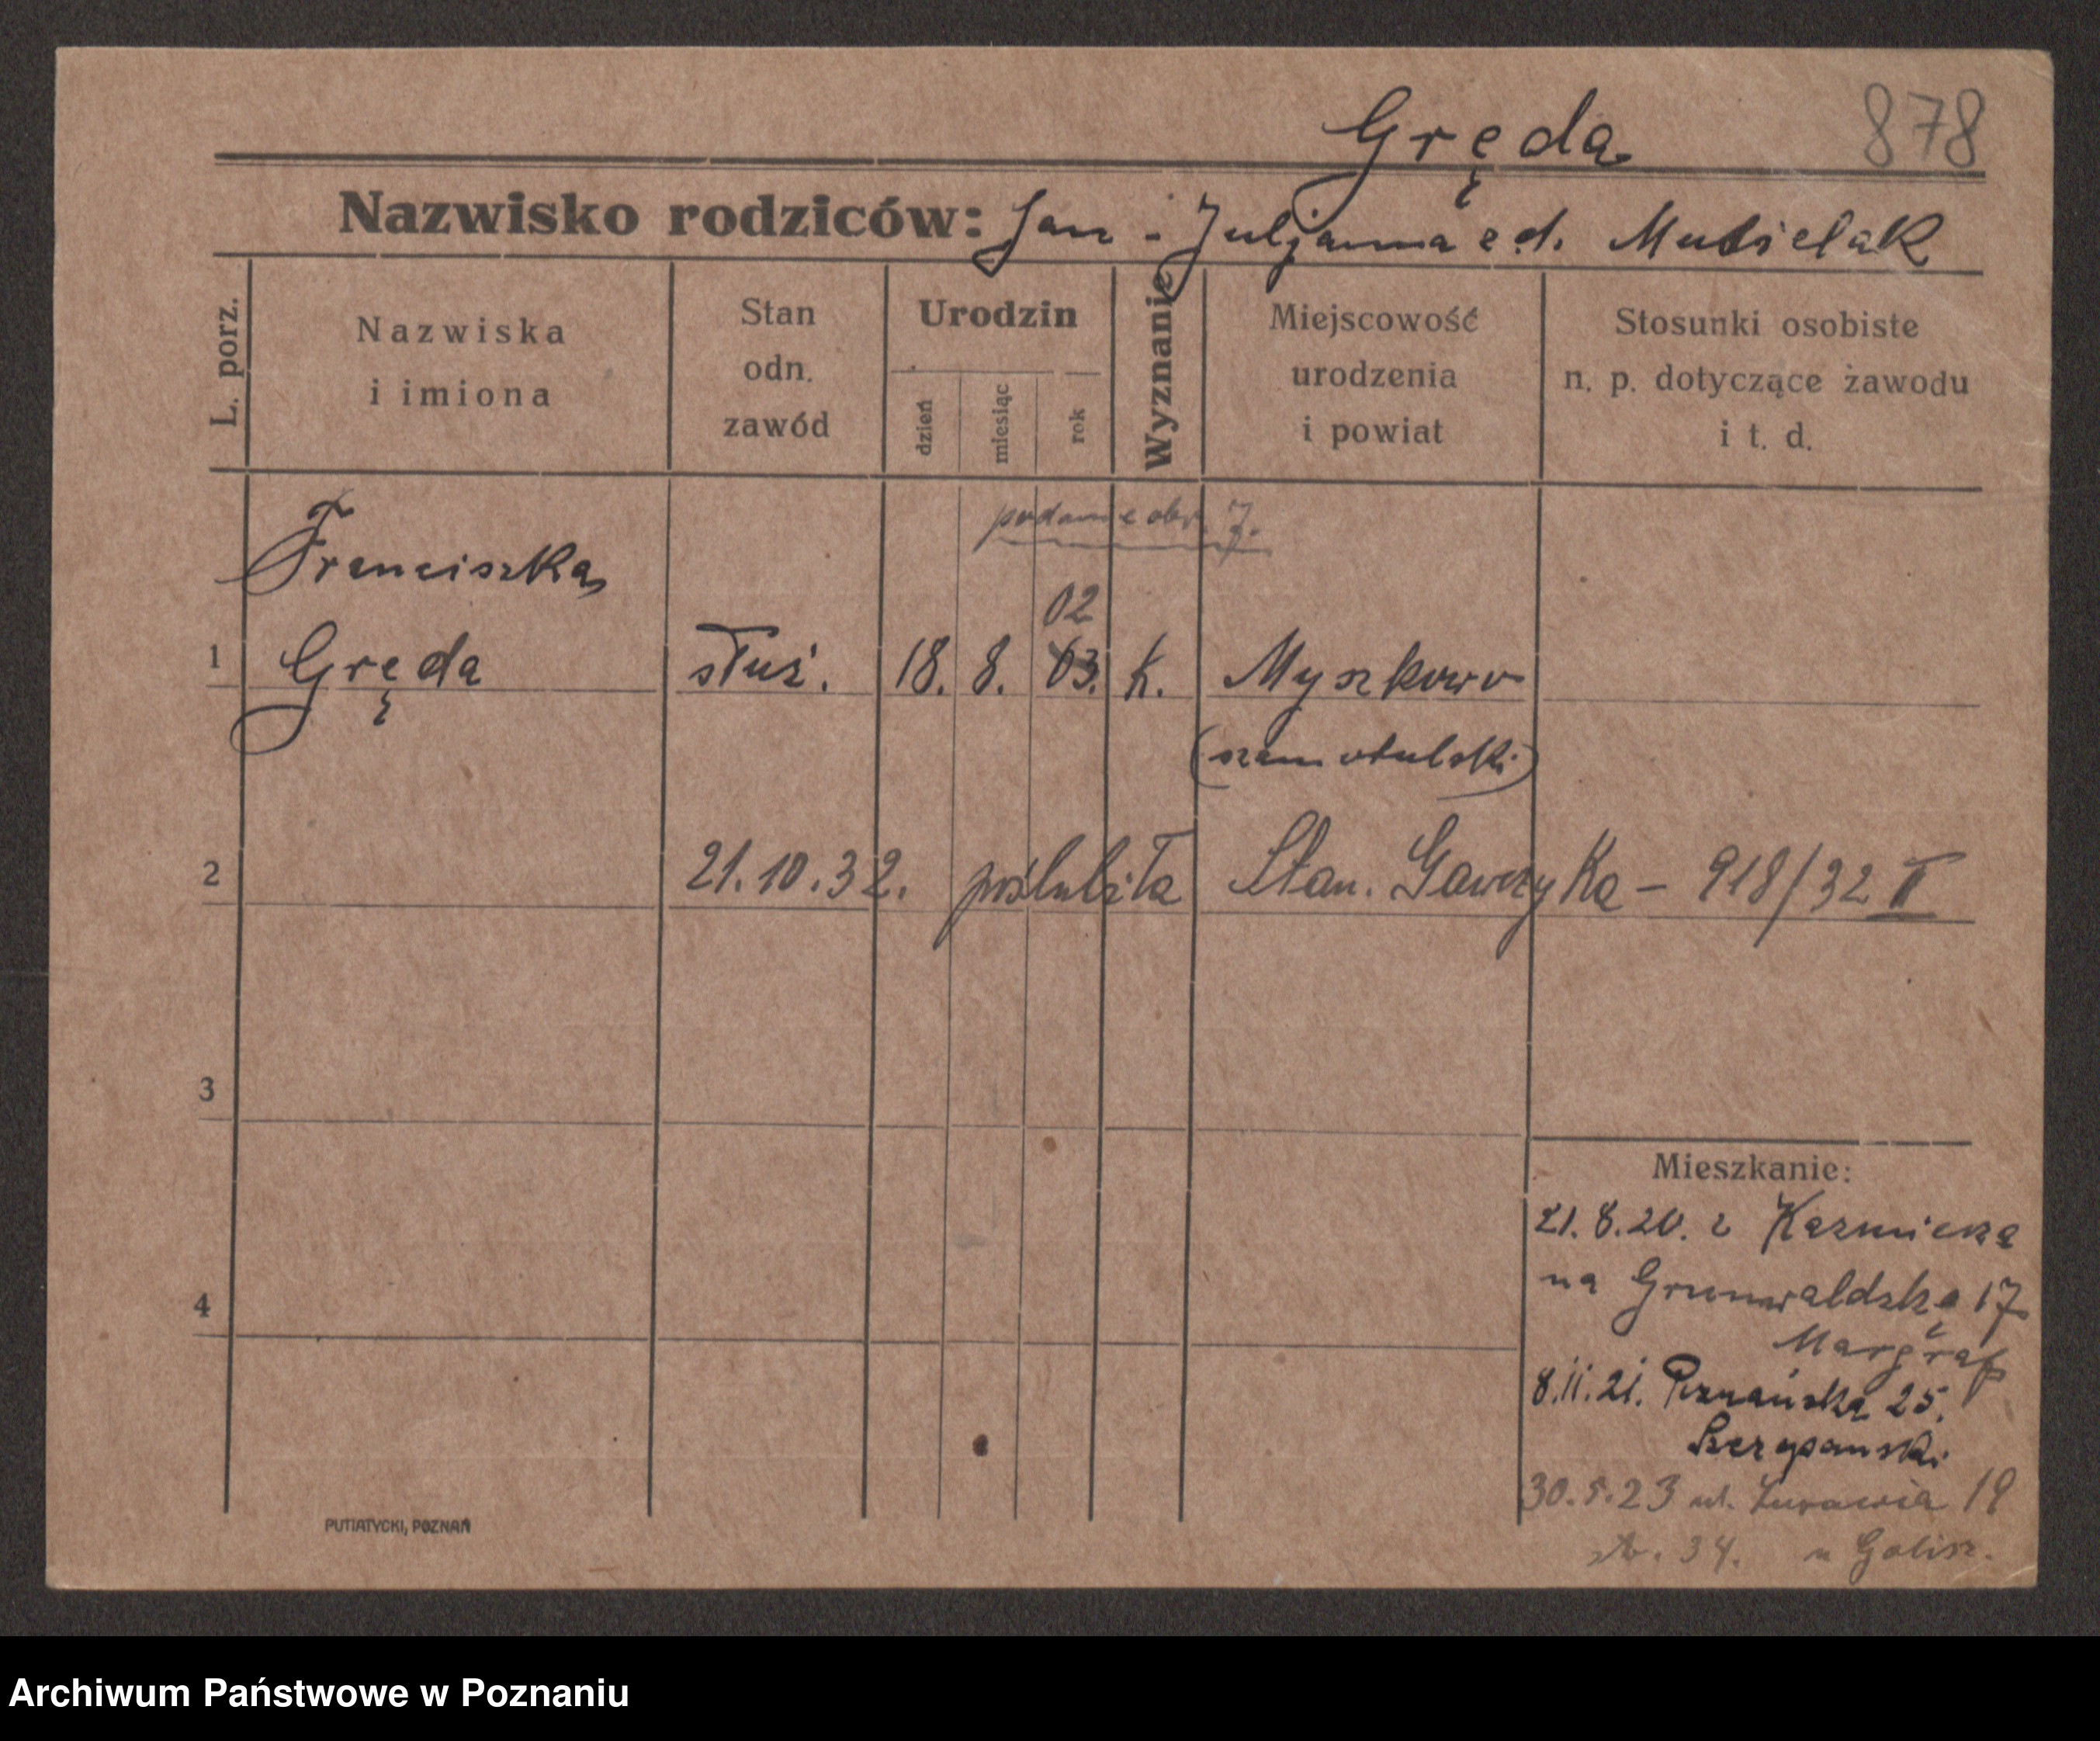 Gręda 878
Nazwisko rodziców: Jan i Juljanna z d. Musielak
L. porz.
Nazwiska
i imiona
Stan
odn.
zawód
Urodzin
dzień
miesiąc
rok
Wyznanie
Miejscowość
urodzenia
i powiat
Stosunki osobiste
n. p. dotyczące zawodu
i t. d.
podanie obr. 7.
Franciszka
02
1 Gręda służ. 18. 8. 03. k. Myszkowo
(szamotulski)
2 21.10.32. poślubiła Stan. Gawrzyka - 918/32 II
3
4
Mieszkanie:
21.8.20. z Kaźmierza
na Grunwaldską 17
Margraf
8.11.21. Poznańska 25.
Szczepanski
30.5.23 ul. Żurawia 19
34. u Golisz.
PUTIATYCKI, POZNAŃ
Archiwum Państwowe w Poznaniu